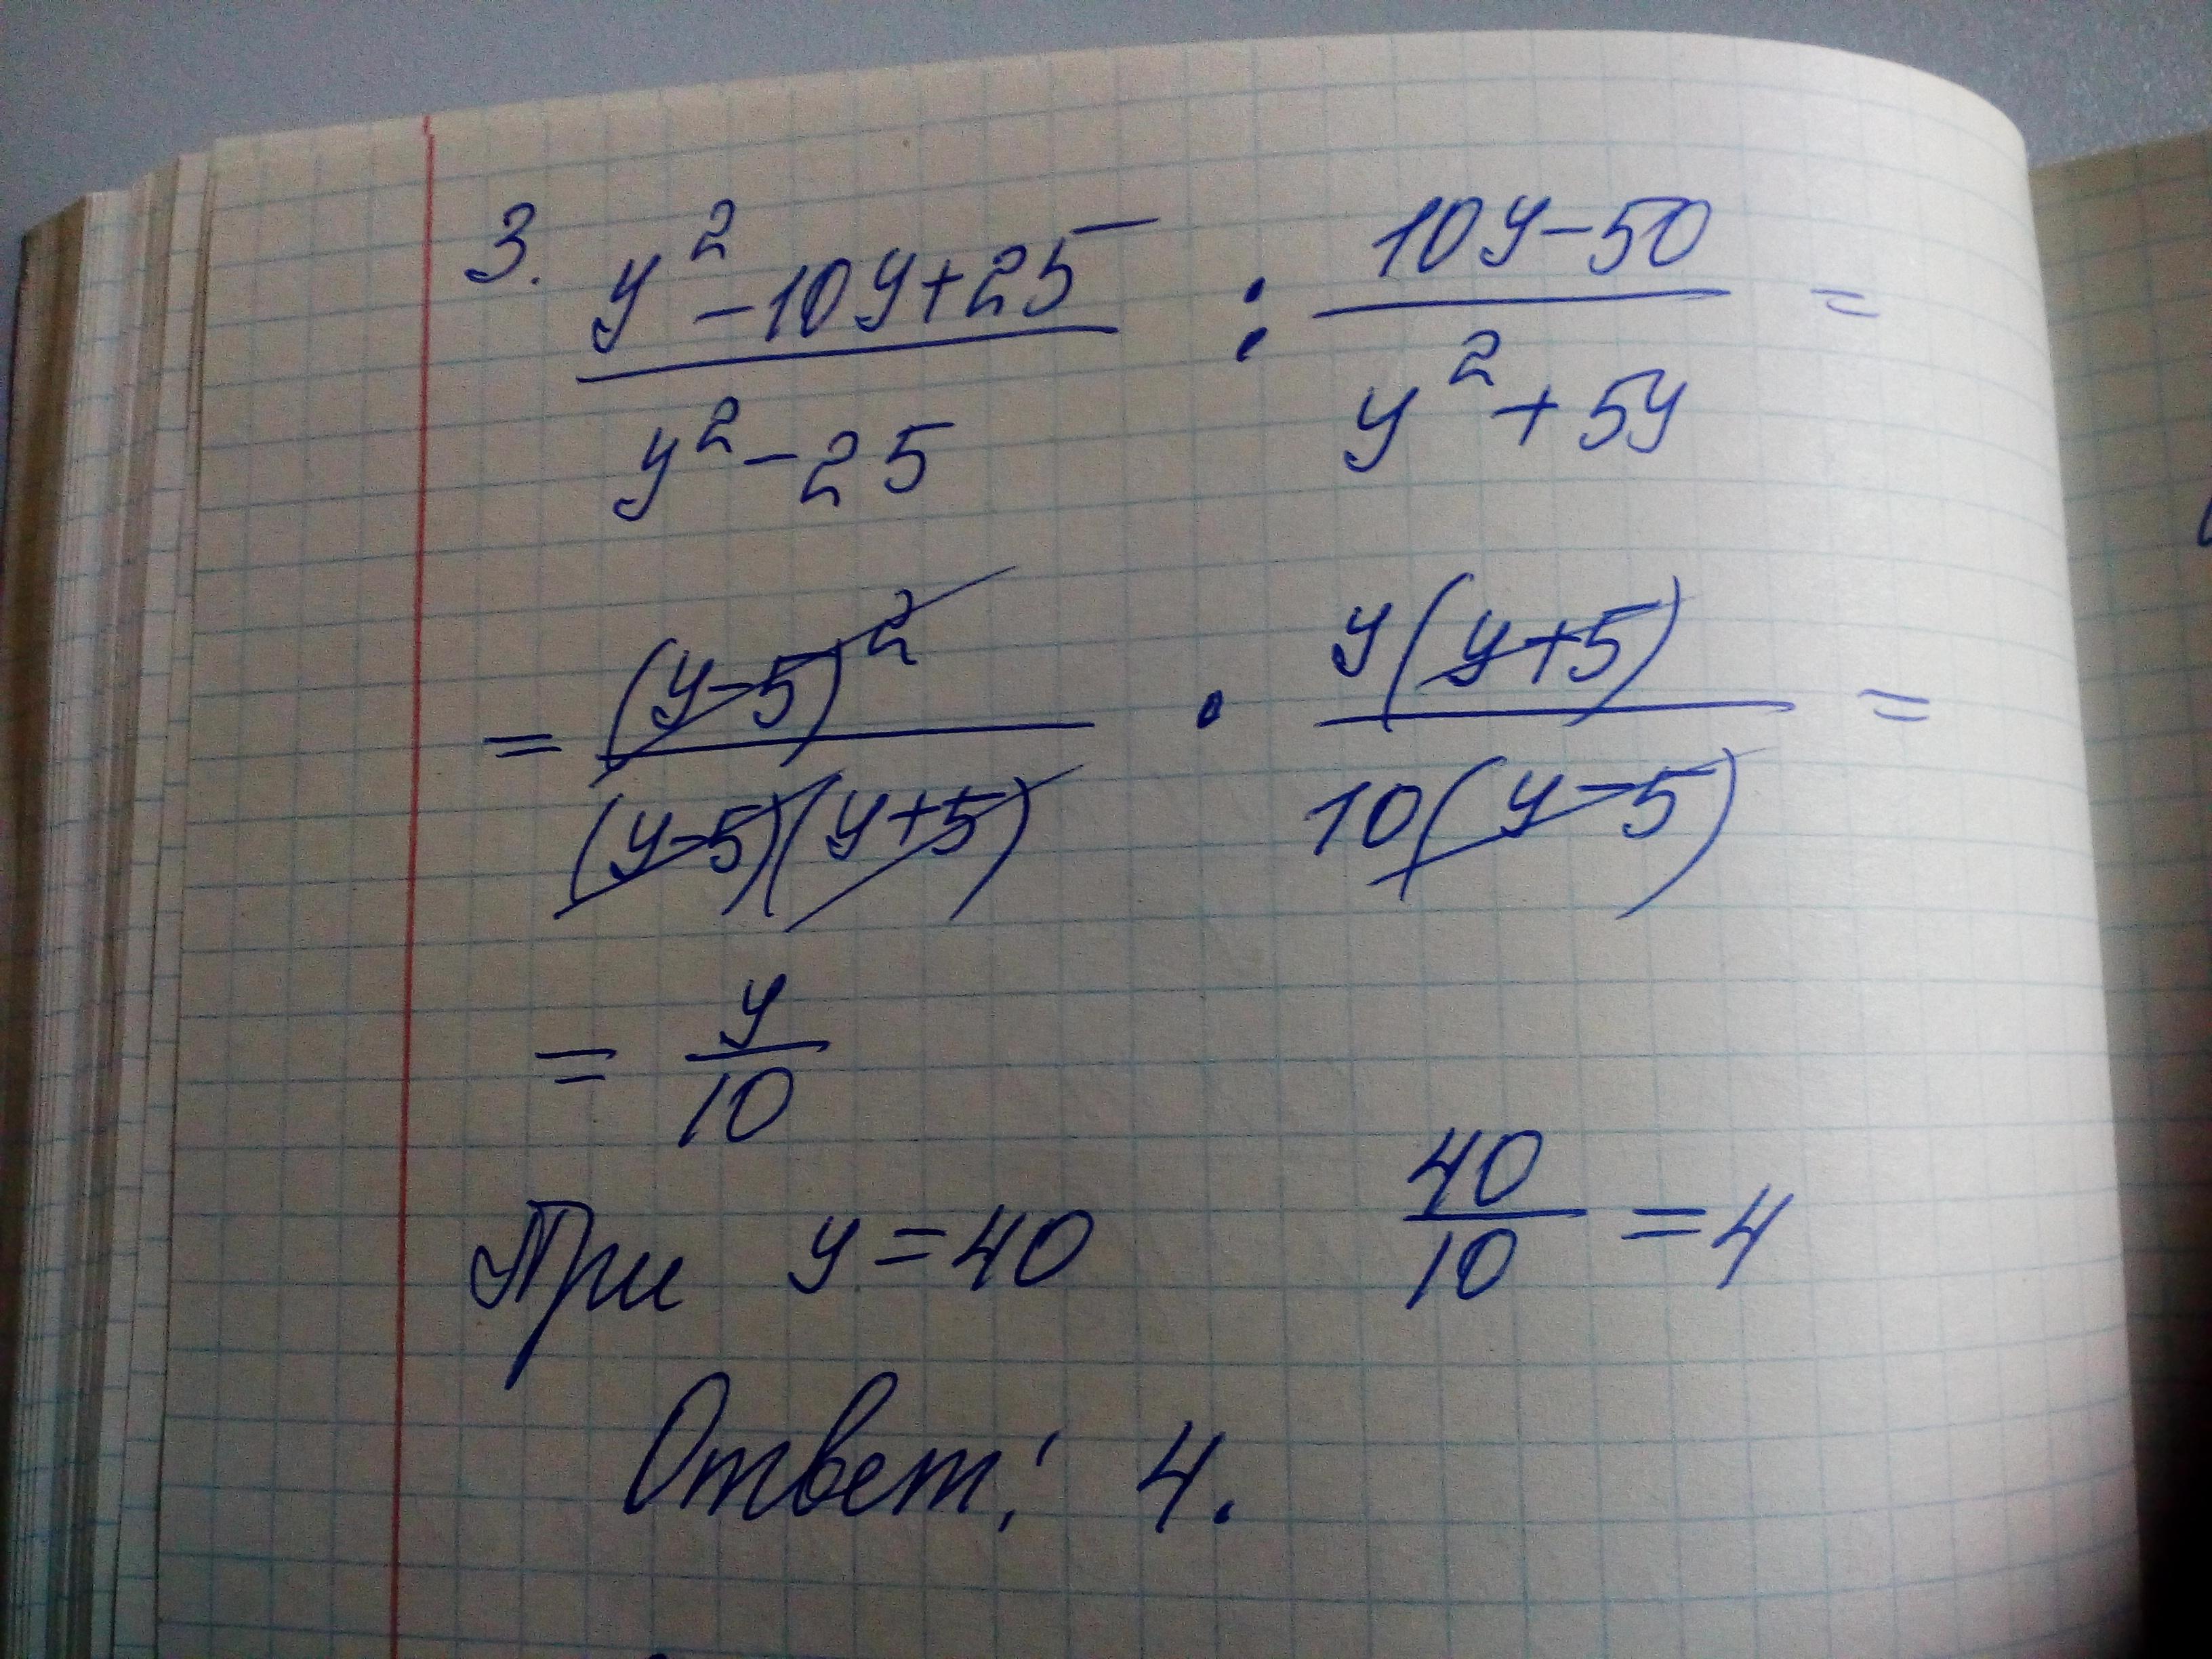 3. (y² - 10y + 25)/(y² - 25) : (10y - 50)/(y² + 5y) =
= (y-5)²/((y-5)(y+5)) · y(y+5)/(10(y-5)) =
= y/10
При y = 40 40/10 = 4
Ответ: 4.